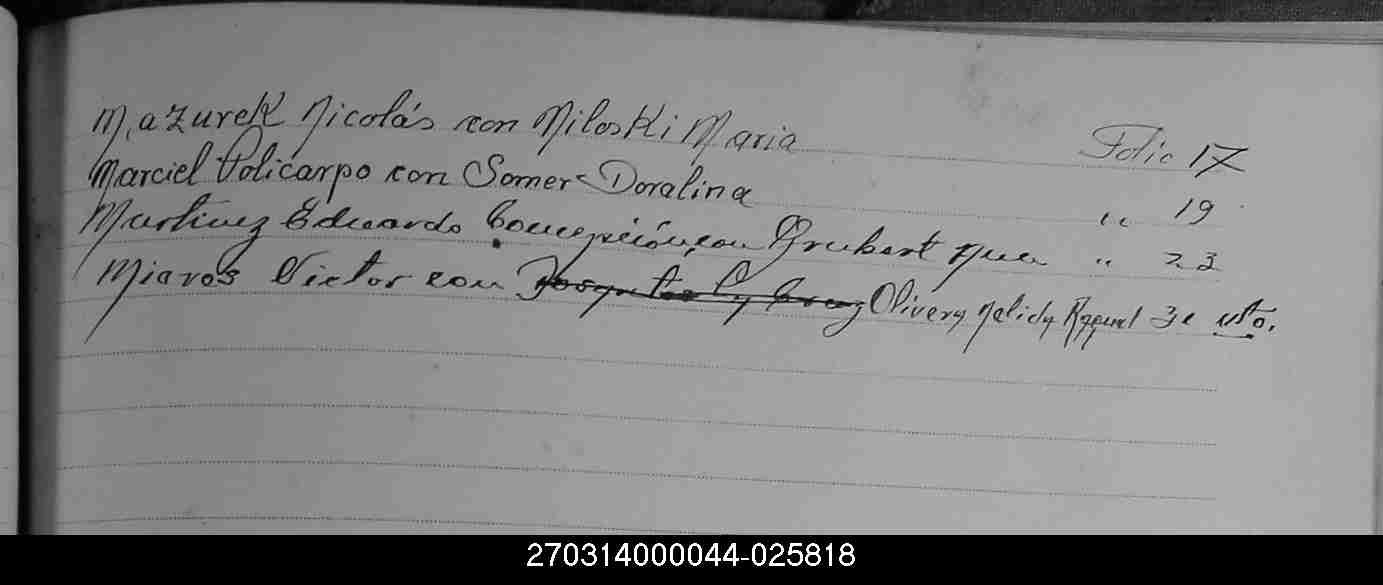 Mazurek Nicolás con Miloski Maria Folio 17
Marciel Policarpo con Somer Doralina " 19
Martinez Eduardo Concepción con Grubert " 23
Miaros Victor con Olivera Nelida Raquel
270314000044-025818